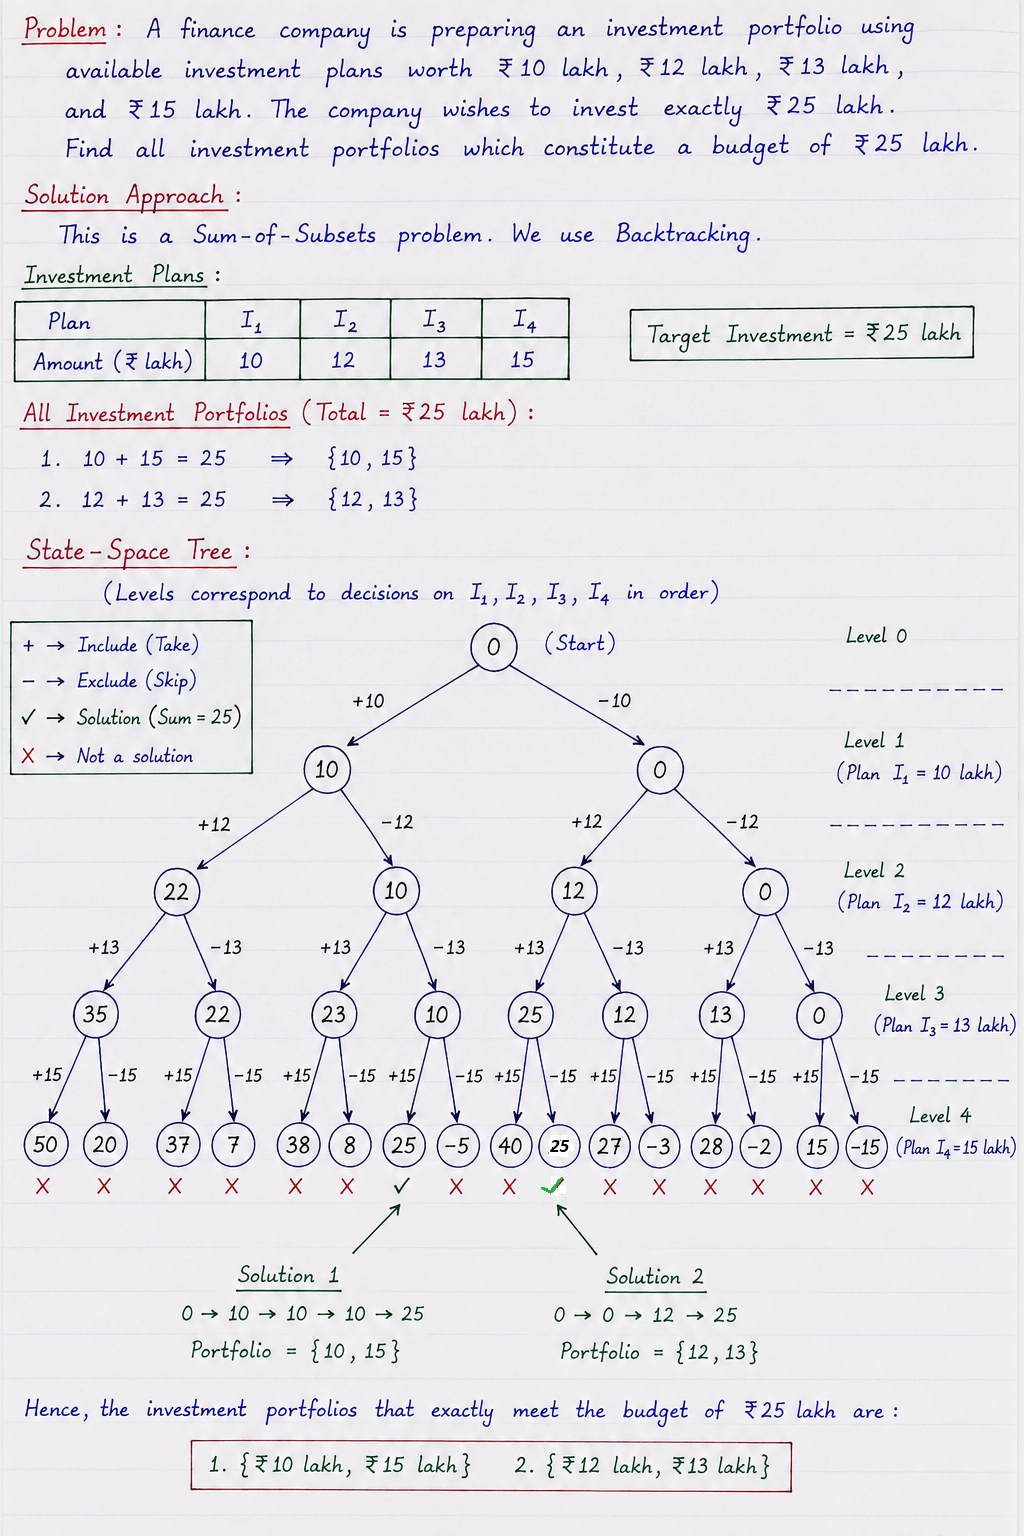 Problem : A finance company is preparing an investment portfolio using
available investment plans worth ₹10 lakh, ₹12 lakh, ₹13 lakh,
and ₹15 lakh. The company wishes to invest exactly ₹25 lakh.
Find all investment portfolios which constitute a budget of ₹25 lakh.
Solution Approach :
This is a Sum-of-Subsets problem. We use Backtracking.
Investment Plans :
Plan I₁ I₂ I₃ I₄
Amount (₹ lakh) 10 12 13 15
Target Investment = ₹25 lakh
All Investment Portfolios (Total = ₹25 lakh) :
1. 10 + 15 = 25 ⇒ {10, 15}
2. 12 + 13 = 25 ⇒ {12, 13}
State-Space Tree :
(Levels correspond to decisions on I₁, I₂, I₃, I₄ in order)
+ → Include (Take)
− → Exclude (Skip)
✓ → Solution (Sum = 25)
X → Not a solution
0 (Start) Level 0
+10 −10
10 0 Level 1
(Plan I₁ = 10 lakh)
+12 −12 +12 −12
22 10 12 0 Level 2
(Plan I₂ = 12 lakh)
+13 −13 +13 −13 +13 −13 +13 −13
35 22 23 10 25 12 13 0 Level 3
(Plan I₃ = 13 lakh)
+15 −15 +15 −15 +15 −15 +15 −15 +15 −15 +15 −15 +15 −15 +15 −15
Level 4
50 20 37 7 38 8 25 −5 40 25 27 −3 28 −2 15 −15 (Plan I₄ = 15 lakh)
X X X X X X ✓ X X ✓ X X X X X X
Solution 1
0 → 10 → 10 → 10 → 25
Portfolio = {10, 15}
Solution 2
0 → 0 → 12 → 25
Portfolio = {12, 13}
Hence, the investment portfolios that exactly meet the budget of ₹25 lakh are :
1. {₹10 lakh, ₹15 lakh} 2. {₹12 lakh, ₹13 lakh}